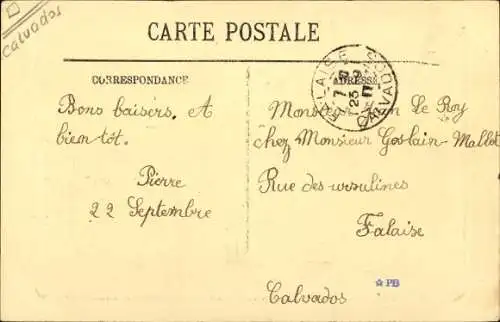 Calvados
CARTE POSTALE
CORRESPONDANCE
ADRESSE
FALAISE
CALVADOS
23
Bons baisers. A
bientôt.
Pierre
22 Septembre
Monsieur Jean Le Roy
chez Monsieur Goslain-Mallet
Rue des ursulines
Falaise
Calvados
PB